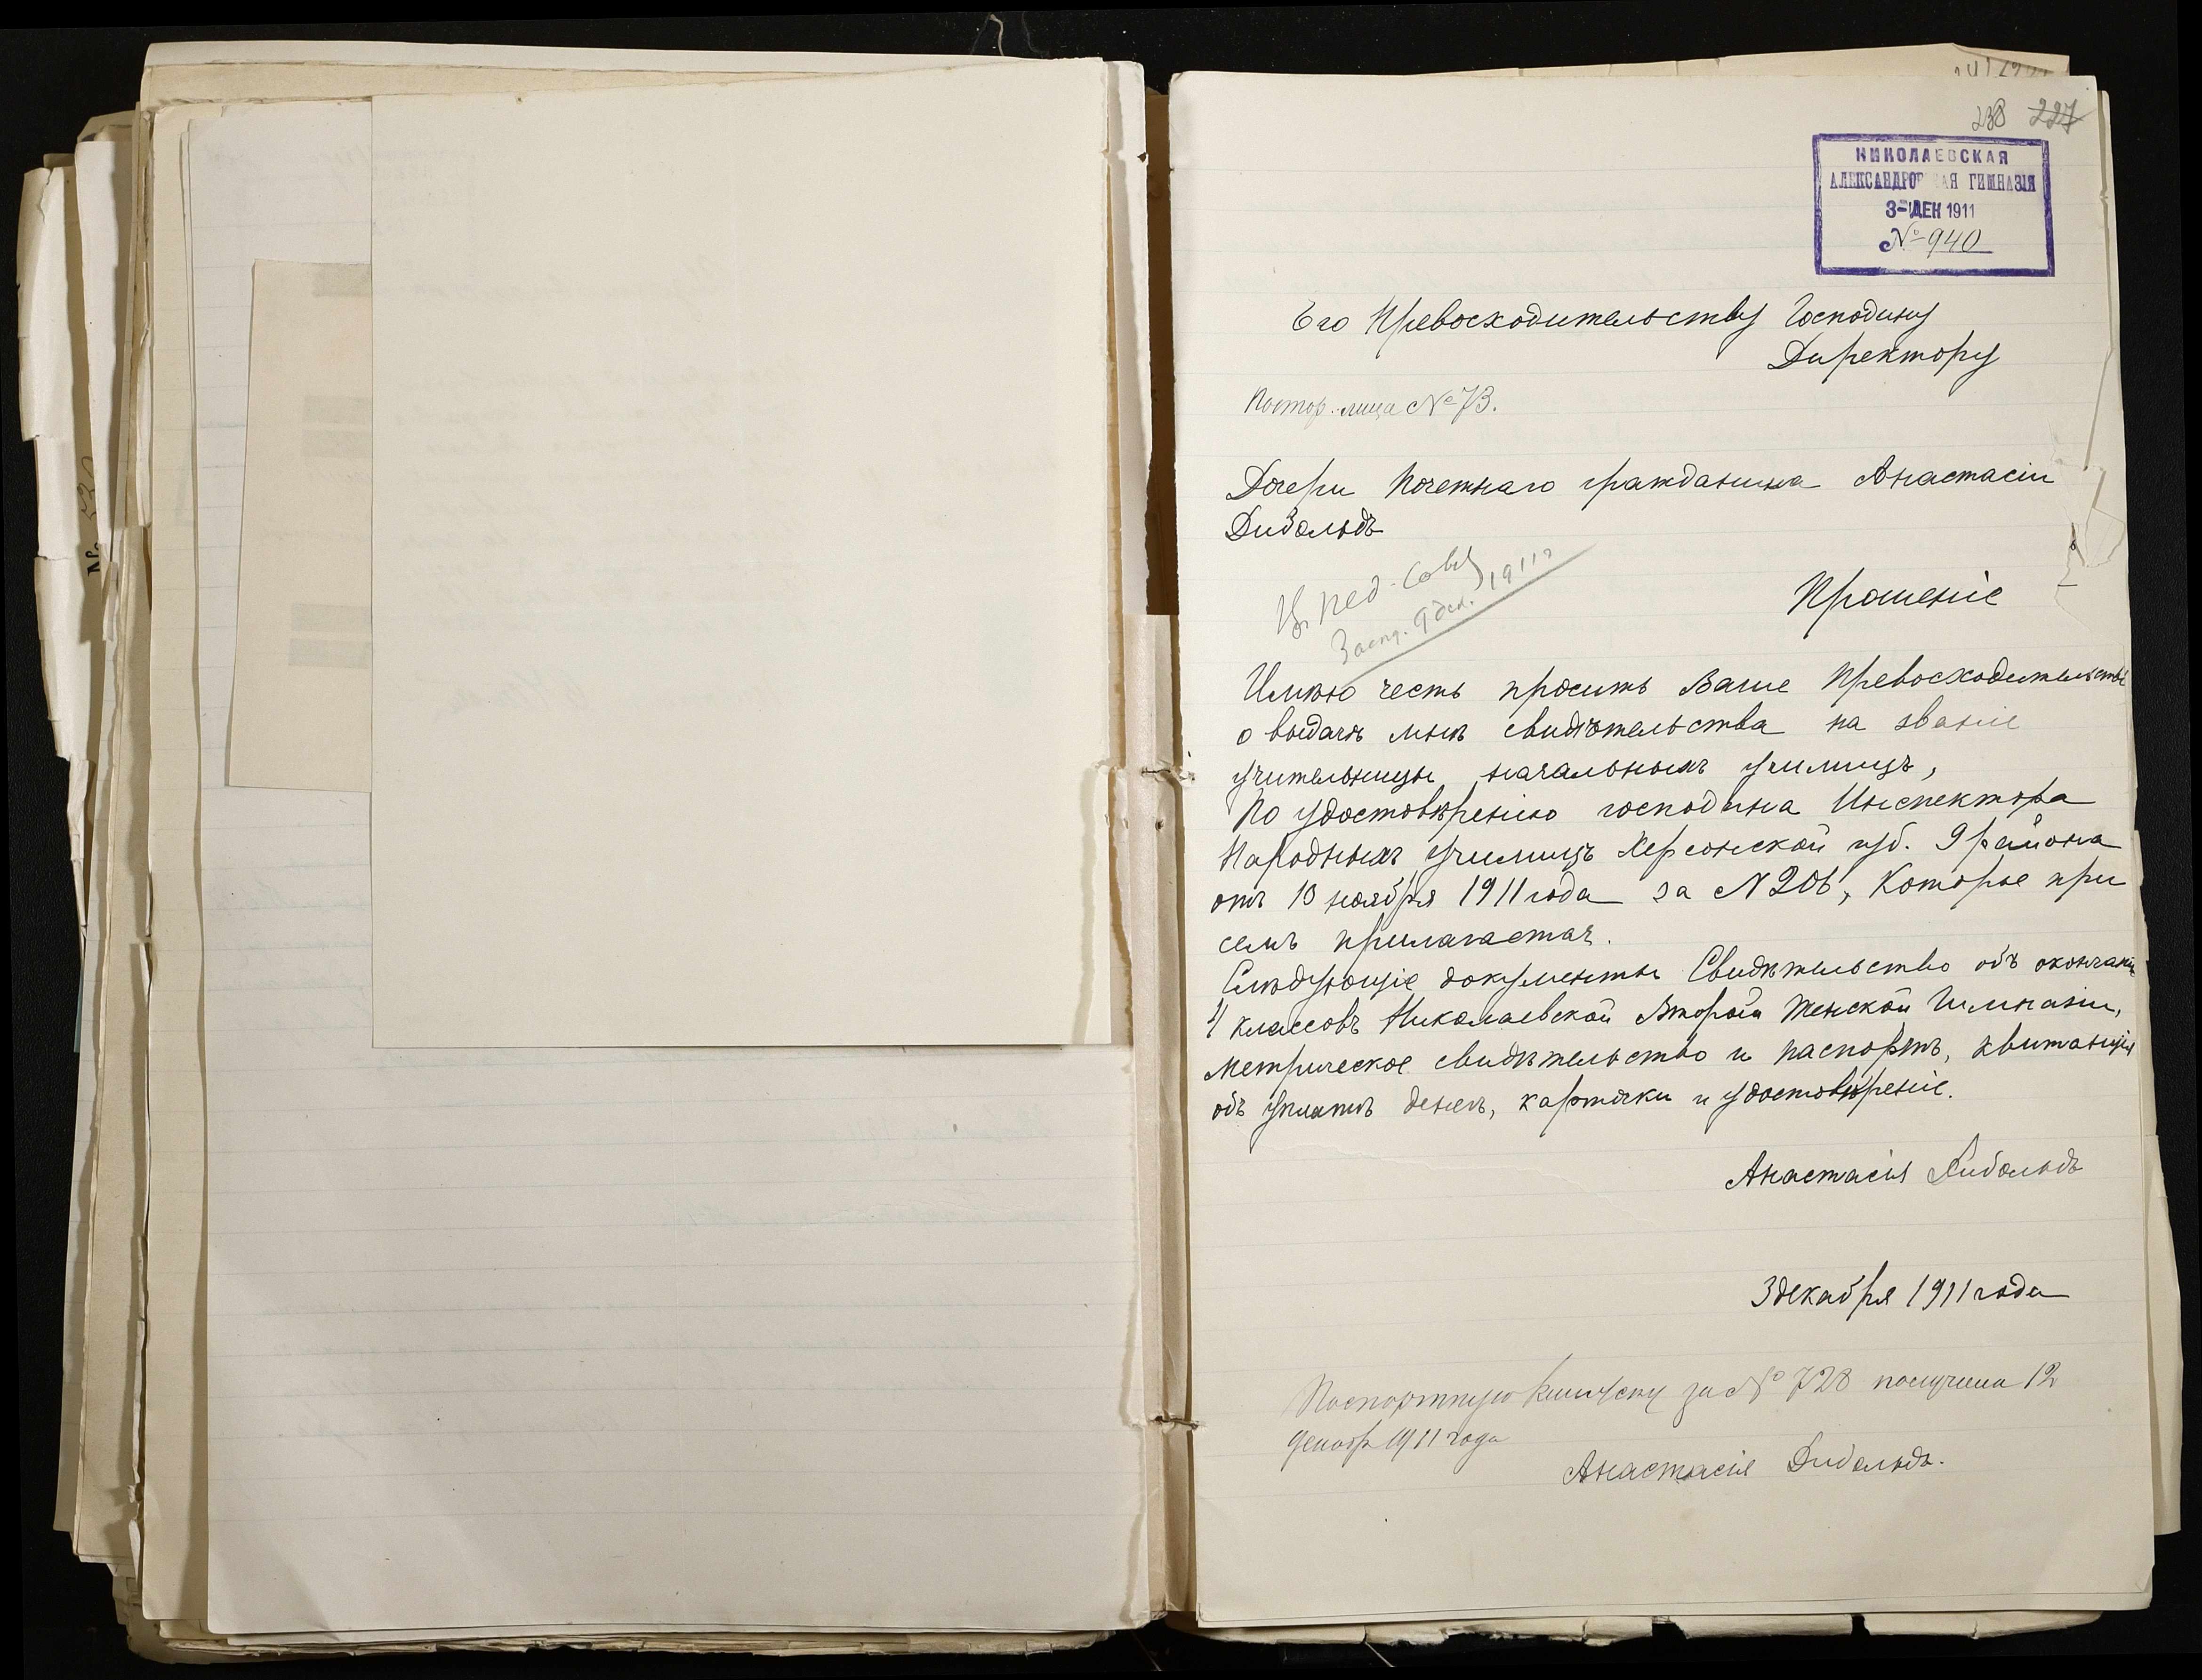 238 227
НИКОЛАЕВСКАЯ
АЛЕКСАНДРОВСКАЯ ГИМНАЗІЯ
3 - ДЕК 1911
№ 940
Его Превосходительству Господину
Директору
Постор. лица № 73.
Дочери почетнаго гражданина Анастасіи
Дибольдъ
Въ пед. сов.
Засед. 9 дек. 1911 г
Прошеніе
Имѣю честь просить Ваше Превосходительство
о выдачѣ мнѣ свидѣтельства на званіе
учительницы начальныхъ училищъ,
По удостовѣренію господина Инспектора
Народныхъ училищъ Херсонской губ. 9 района
отъ 10 ноября 1911 года за N 206, Которое при
семъ прилагается.
Слѣдующіе документы Свидѣтельство объ окончаніи
4 классовъ Николаевской Второй Женской Гимназіи,
метрическое свидѣтельство и паспортъ, квитанція
объ уплатѣ денегъ, карточки и удостовѣреніе.
Анастасія Дибольдъ
3 декабря 1911 года
Паспортную книжку за № 728 получила 12
декабр 1911 года
Анастасія Дибольдъ.